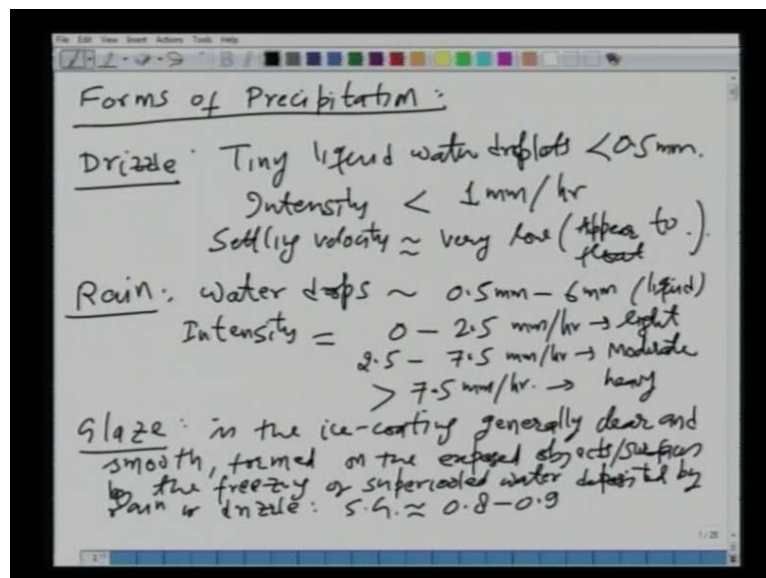 File Edit View Insert Actions Tools Help
Forms of Precipitation :
Drizzle : Tiny liquid water droplets < 0.5 mm.
Intensity < 1 mm/hr
Settling velocity ≈ very low (Appear to float.)
Rain : Water drops ~ 0.5mm – 6mm (liquid)
Intensity = 0 – 2.5 mm/hr → light
2.5 – 7.5 mm/hr → Moderate
> 7.5 mm/hr. → heavy
Glaze : is the ice-coating generally clear and
smooth, formed on the exposed objects/surfaces
by the freezing of supercooled water deposited by
rain or drizzle : S.G. ≈ 0.8 – 0.9
1/25